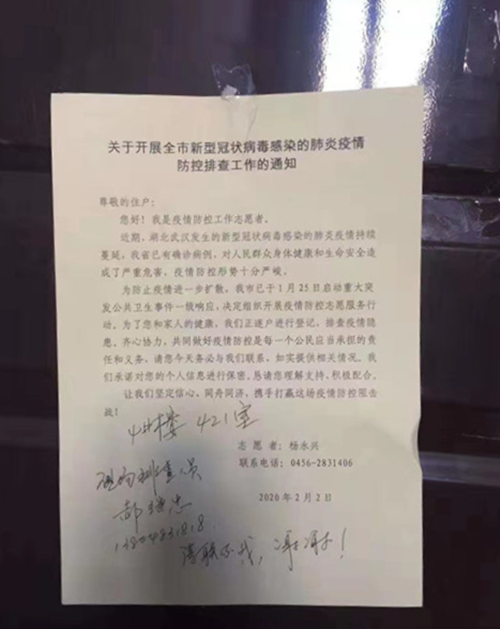 关于开展全市新型冠状病毒感染的肺炎疫情
防控排查工作的通知
尊敬的住户：
您好！我是疫情防控工作志愿者。
近期，湖北武汉发生的新型冠状病毒感染的肺炎疫情持续
蔓延，我省已有确诊病例，对人民群众身体健康和生命安全造
成了严重危害，疫情防控形势十分严峻。
为防止疫情进一步扩散，我市已于1月25日启动重大
突发公共卫生事件一级响应，决定组织开展疫情防控志愿服务行
动。为了您和家人的健康，我们正逐户进行登记，排查疫情隐
患。齐心协力，共同做好疫情防控是每一个公民应当承担的责
任和义务，请您今天务必与我们联系，如实提供相关情况。我
们承诺对您的个人信息进行保密，恳请您理解支持、积极配合。
让我们坚定信心，同舟同济，携手打赢这场疫情防控阻击
战！
4#楼 421室
志愿者：杨永兴
联系电话：0456-2831406
排查员
2020年2月2日
请联系我，谢谢！